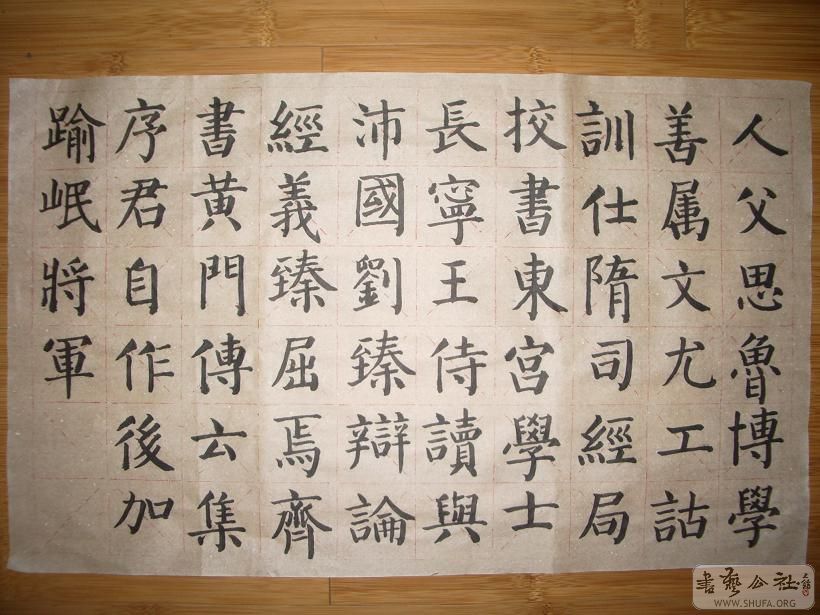 人父思魯博學
善属文尤工詁
訓仕隋司經局
挍書東宮學士
長寧王侍讀與
沛國劉臻辯論
經義臻屈焉齊
書黃門傳云集
序君自作後加
踰岷將軍
書藝公社
WWW.SHUFA.ORG